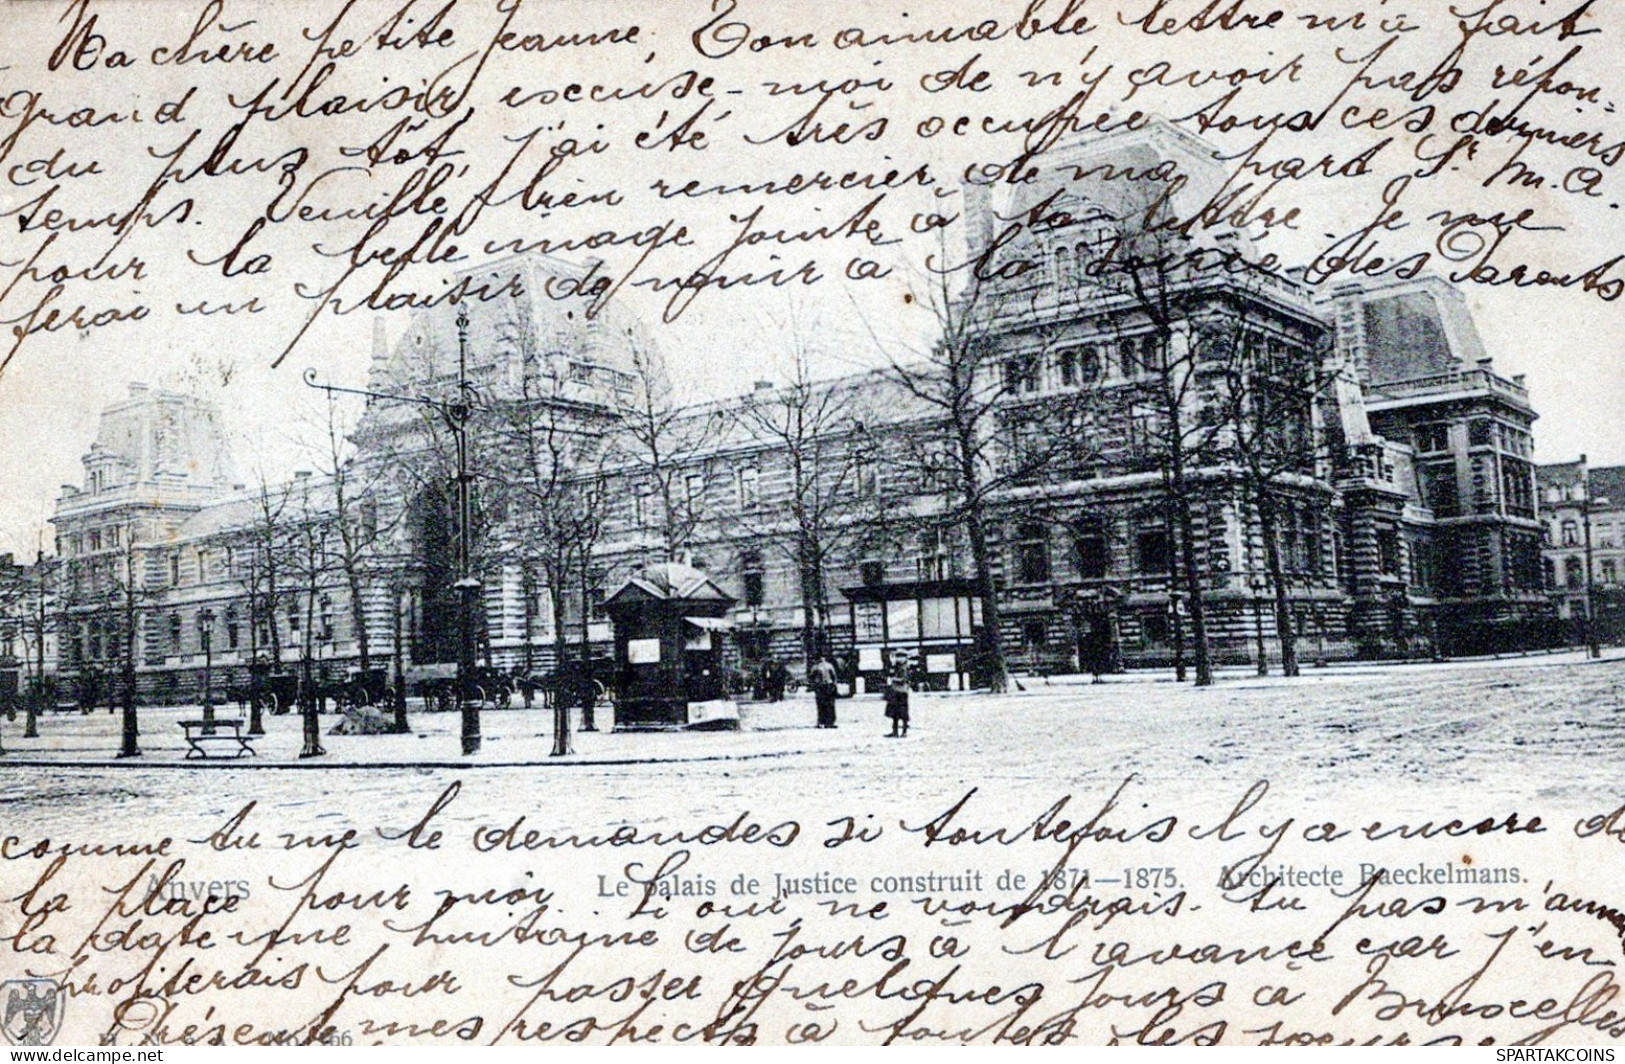 Ma chère petite Jeanne, Ton aimable lettre m'a fait
grand plaisir, excuse-moi de n'y avoir pas répon-
du plus tôt, j'ai été très occupée tous ces derniers
temps. Veuille bien remercier de ma part Sr M. A.
pour la belle image jointe à ta lettre. Je me
ferai un plaisir de venir à la soirée des Parents
comme tu me le demandes si toutefois il y a encore de
Anvers Le palais de Justice construit de 1871—1875. Architecte Baeckelmans.
la place pour moi. Si oui, ne voudrais-tu pas m'annoncer
la date une huitaine de jours à l'avance car j'en
profiterais pour passer quelques jours à Bruxelles
Présente mes respects à toutes les soeurs
66
SPARTAKCOINS
https://www.spartakcoins.com